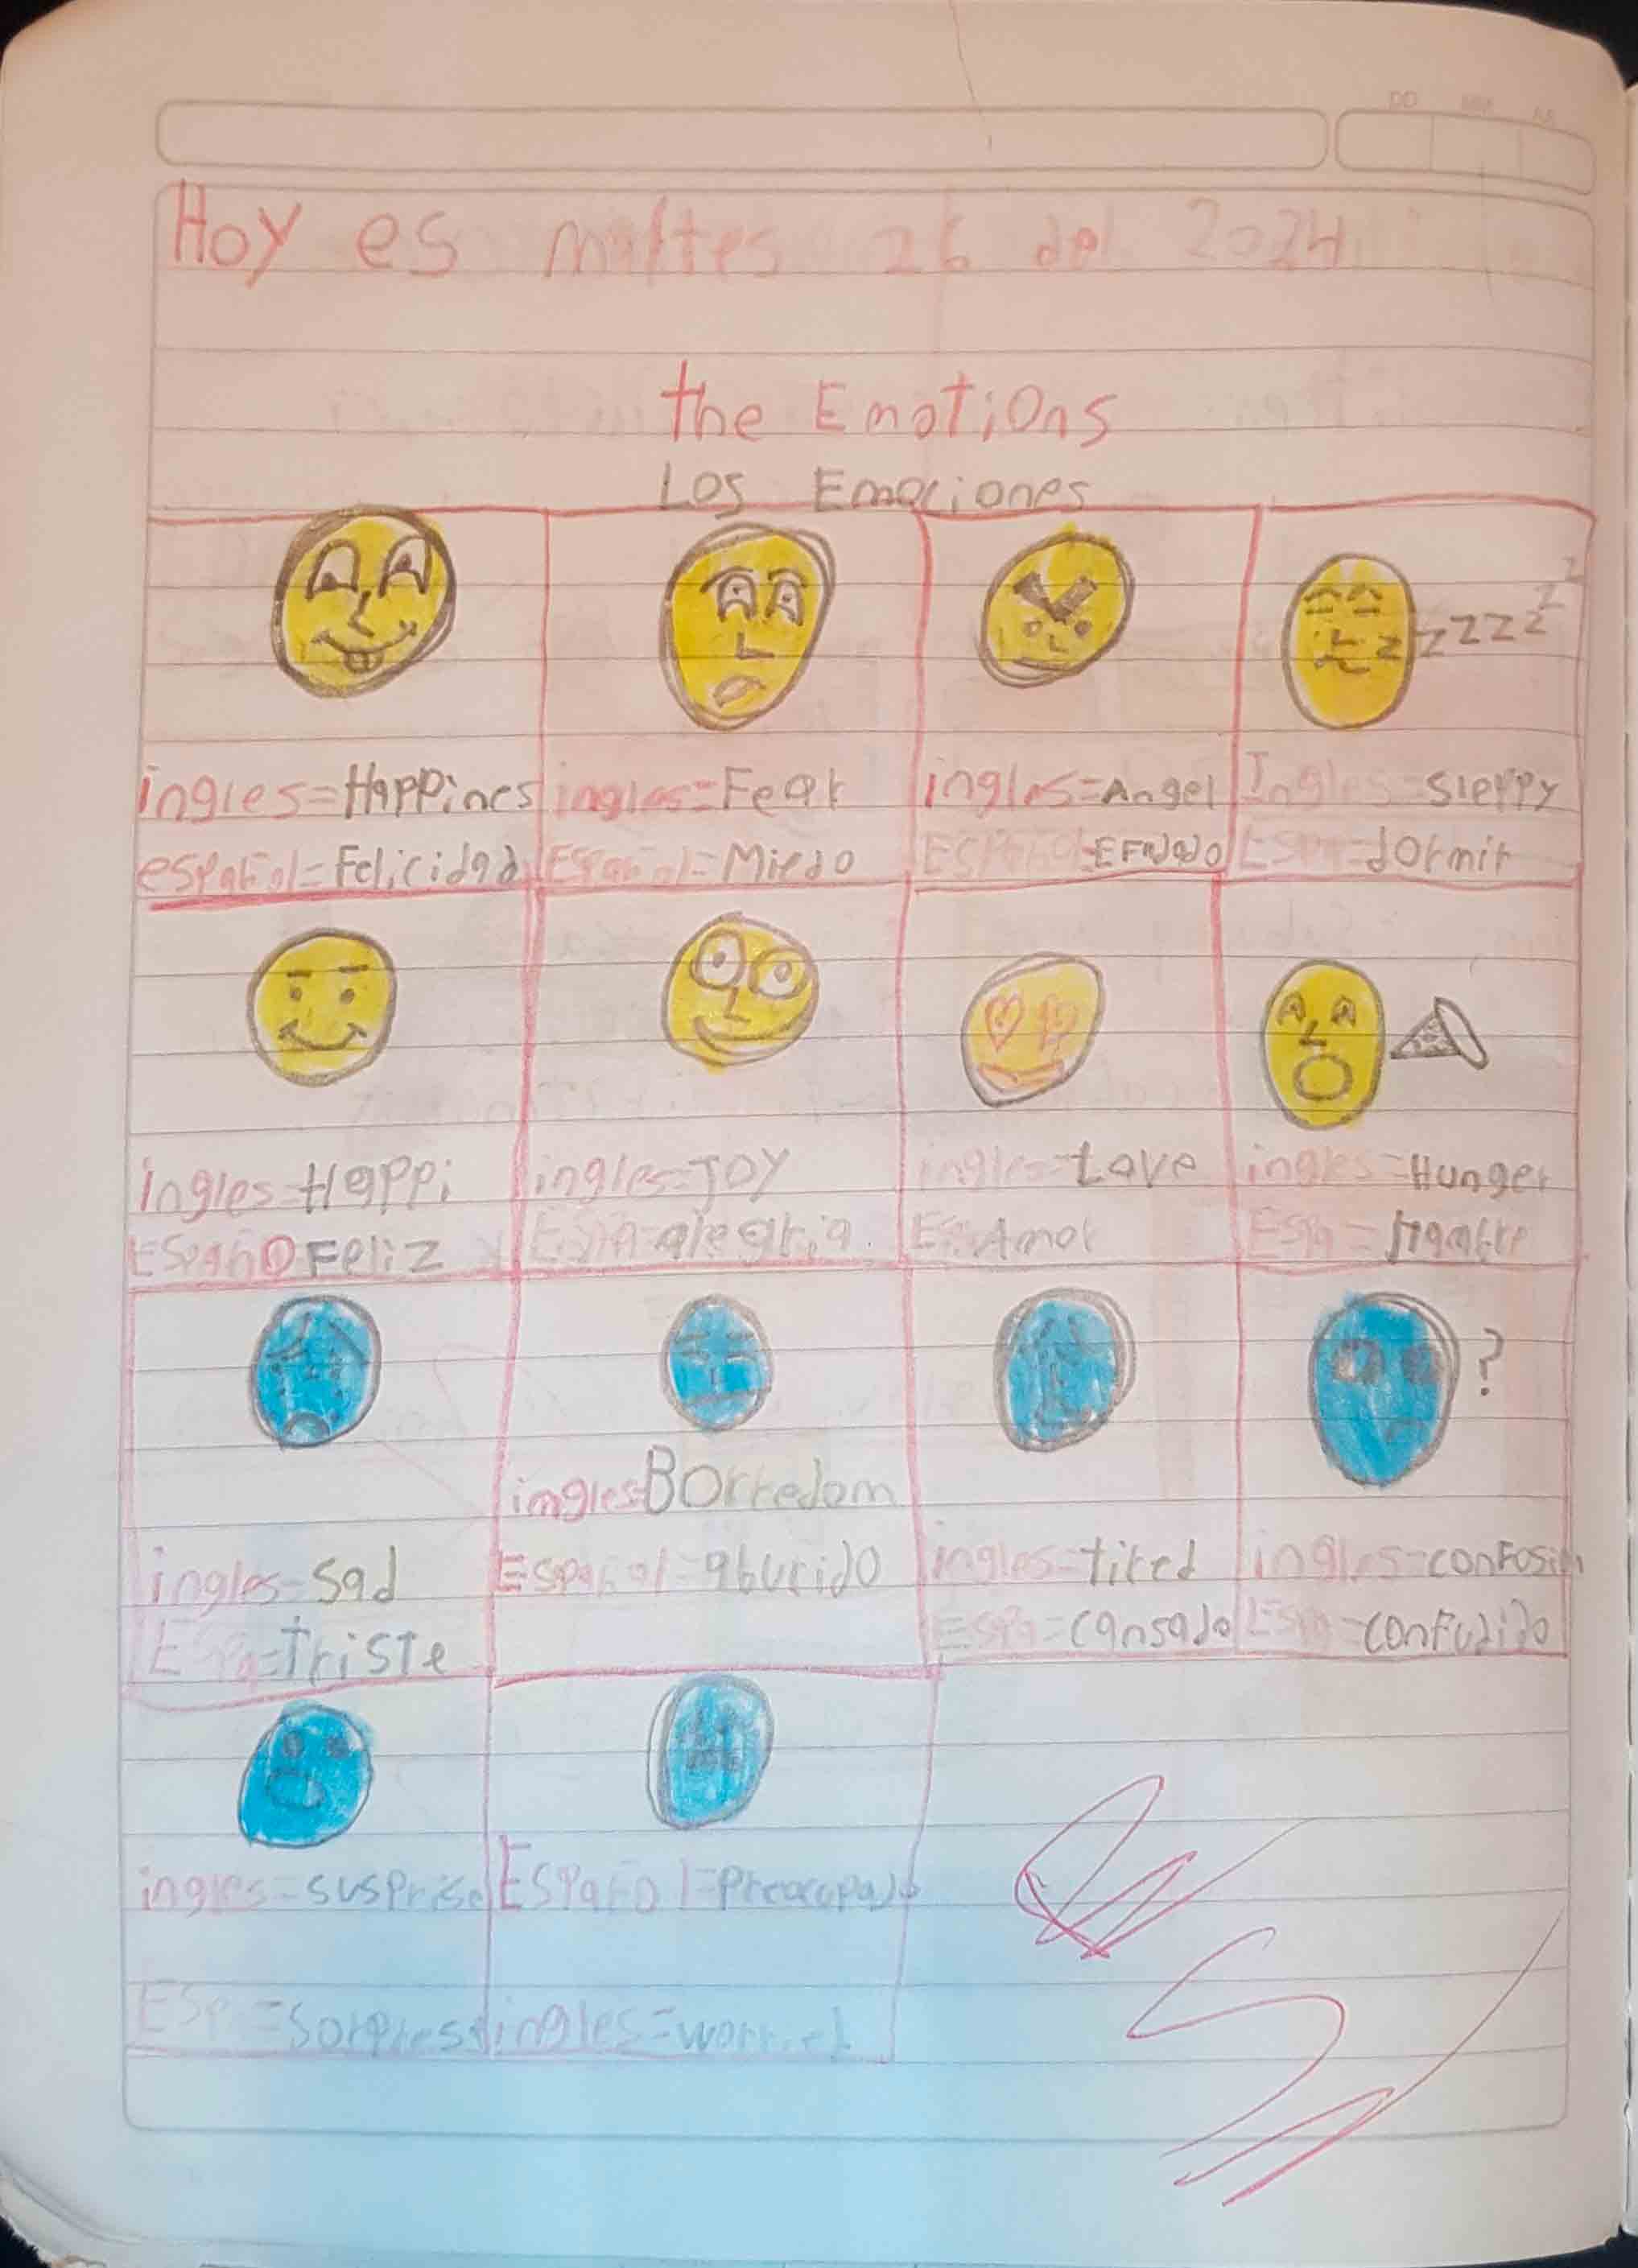 DD MM AA
Hoy es maltes 26 del 2024
the Emotions
Los Emociones
ingles=Happines
español=Felicidad
ingles=Fear
Español=Miedo
ingles=Angel
Español=EFNado
Ingles=Sleppy
Espa=dormir
z z z z z z
Ingles=Happi
Españo Feliz
ingles=JOY
Espa=alegria
ingles=Love
Es=Amor
ingles=Hunger
Espa=Hambre
ingles=Sad
Espa=Triste
ingles=Borredom
Español=aburido
ingles=tired
Espa=cansado
?
ingles=confosin
Espa=confudido
ingles=susprise
Esp=Sorpres
Español=Preocupado
ingles=worried